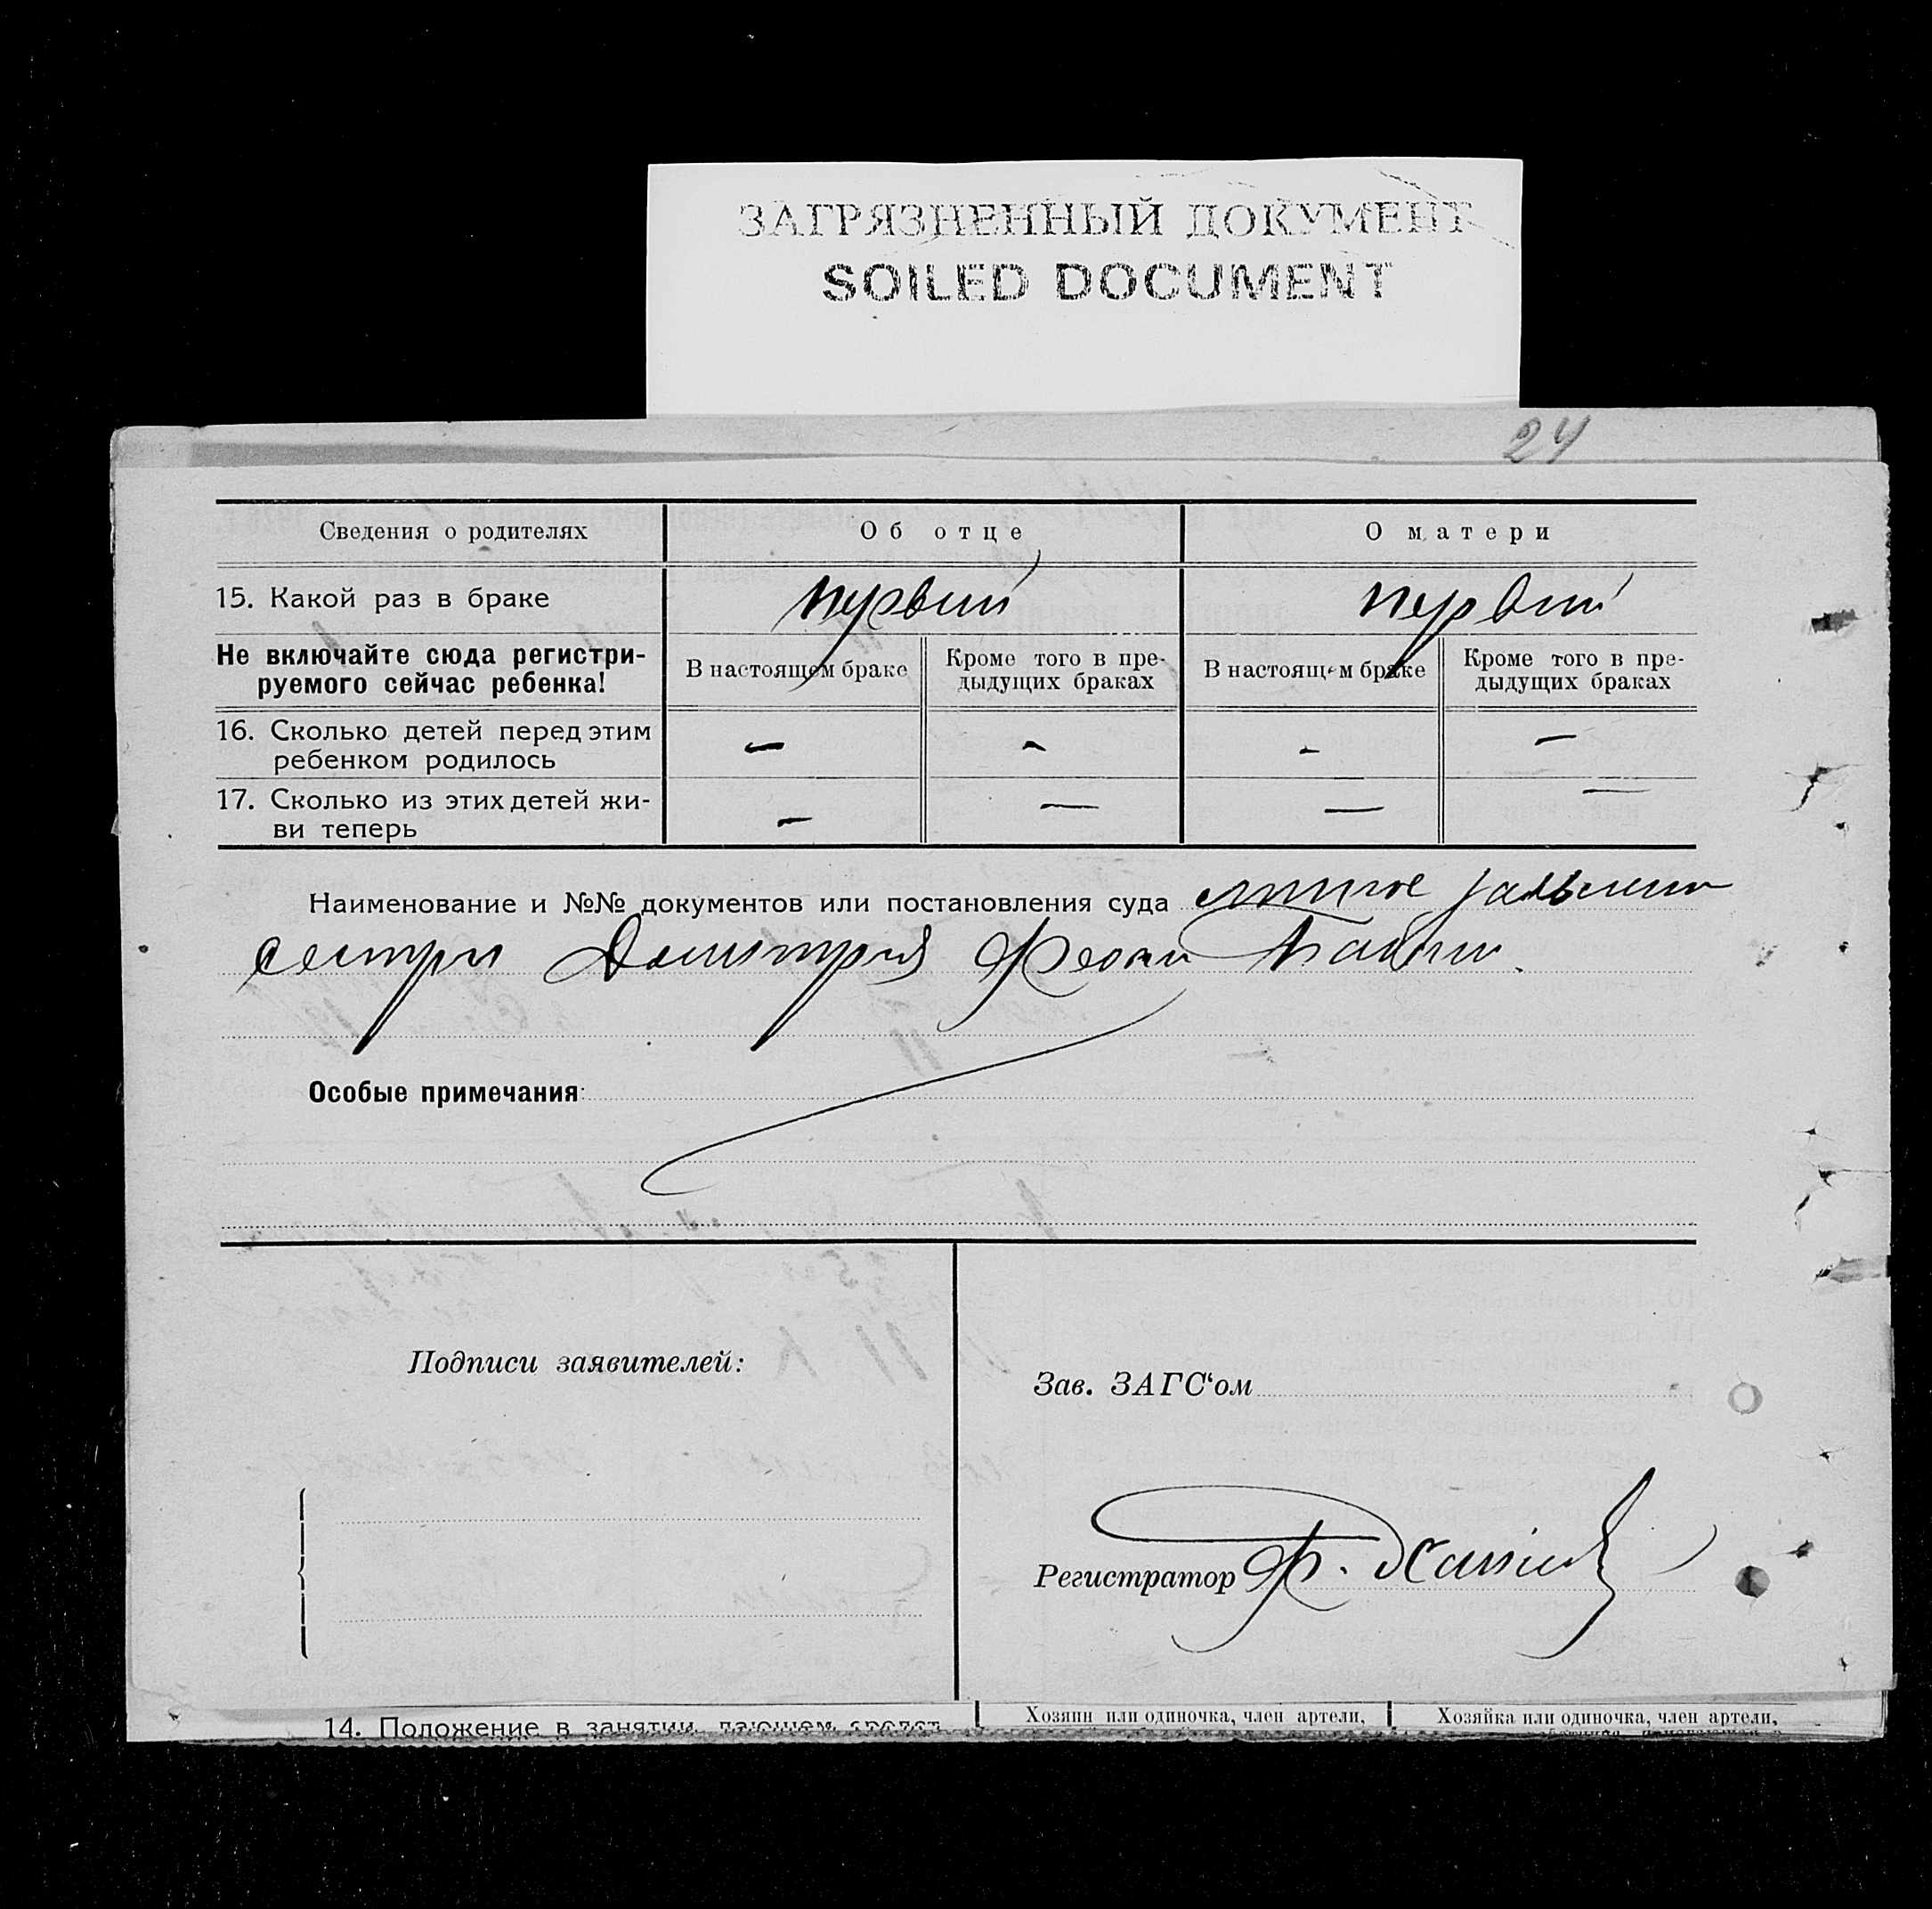 ЗАГРЯЗНЕННЫЙ ДОКУМЕНТ
SOILED DOCUMENT
24
Сведения о родителях Об отце О матери
15. Какой раз в браке первый первый
Не включайте сюда регистри-
руемого сейчас ребенка!
В настоящем браке
Кроме того в пре-
дыдущих браках
В настоящем браке
Кроме того в пре-
дыдущих браках
16. Сколько детей перед этим
ребенком родилось — — — —
17. Сколько из этих детей жи-
ви теперь — — — —
Наименование и №№ документов или постановления суда личное заявление
сестры Димитрия
Особые примечания:
Подписи заявителей:
Зав. ЗАГС‘ом
Регистратор Ф.
14. Положение в занятии, дающем средст
Хозяин или одиночка, член артели,
Хозяйка или одиночка, член артели,